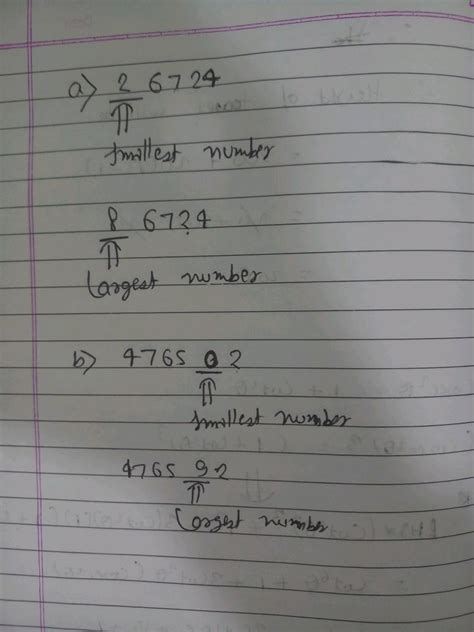 a) 2 6724
smallest number
8 6724
largest number
b) 4765 0 2
smallest number
4765 9 2
largest number